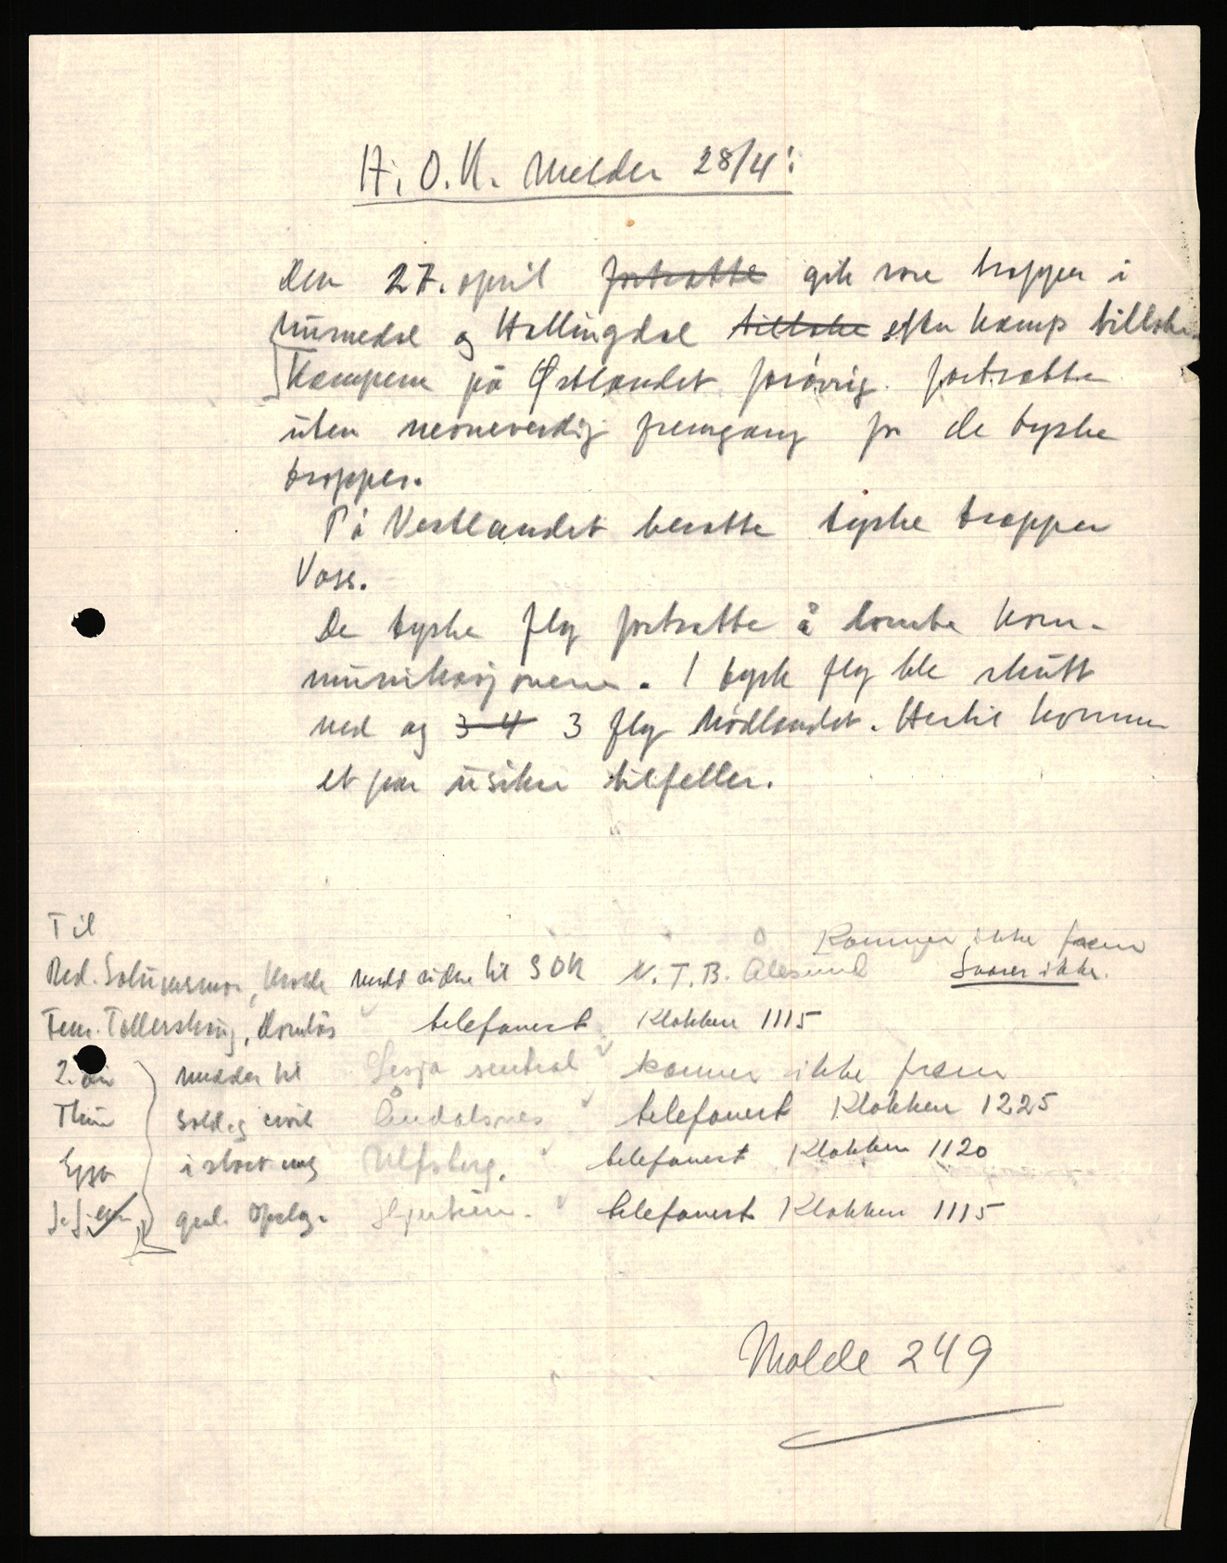 H.O.K. Melder 28/4:
Den 27. april fortsatte gik våre tropper i
Numedal og Hallingdal tilbake efter kamp tilbake
Kampene på Østlandet forøvrig fortsatte
uten nevneverdig fremgang for de tyske
tropper.
På Vestlandet besatte tyske tropper
Voss.
De tyske fly fortsatte å bombe kom-
munikasjonene. 1 tysk fly ble skutt
ned og 3-4 3 fly nødlandet. Hertil kommer
et par usikre tilfeller.
Til
Kommer ikke frem
Red. Solumsmoe, Molde meld videre til SOK N.T.B. Ålesund Svarer ikke.
Tollerskrug, Dombås telefonert Klokken 1115
2. div meddes til Lesja sentral kommer ikke frem
Thue sold. og civil Åndalsnes telefonert Klokken 1225
Egge i strøket Ulfsberg. telefonert Klokken 1120
Hjerkinn. telefonert Klokken 1115
Molde 249